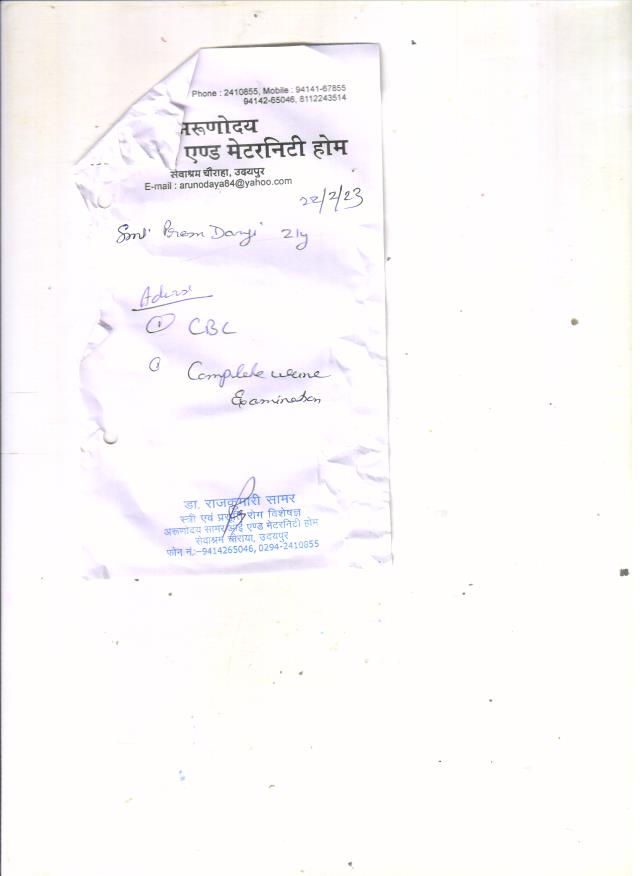 Phone : 2410855, Mobile : 94141-67855
94142-65046, 8112243514
अरूणोदय
एण्ड मेटरनिटी होम
सेवाश्रम चौराहा, उदयपुर
E-mail : arunodaya84@yahoo.com
22/2/23
Smt. Prem Dangi 21y
① CBC
Complete urine
Examination
डा. राजकुमारी सामर
स्त्री एवं प्रसूति रोग विशेषज्ञ
अरूणोदय सामर आई एण्ड मेटरनिटी होम
सेवाश्रम चौराया, उदयपुर
फोन नं.:-9414265046, 0294-2410855